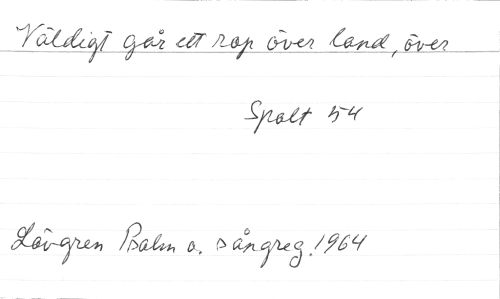 Väldigt går ett rop över land, över
Spalt 54
Lövgren Psalm o. sångreg. 1964